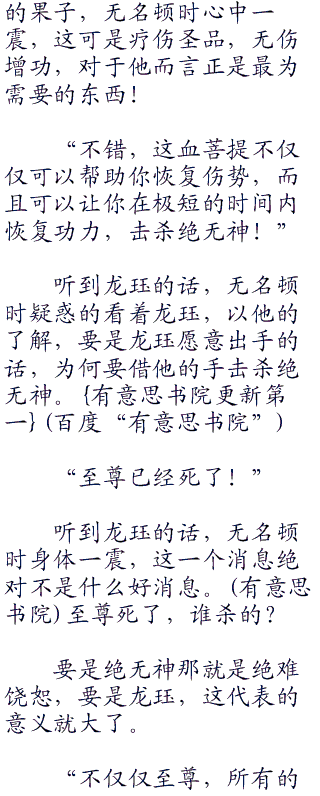 的果子，无名顿时心中一
震，这可是疗伤圣品，无伤
增功，对于他而言正是最为
需要的东西！
“不错，这血菩提不仅
仅可以帮助你恢复伤势，而
且可以让你在极短的时间内
恢复功力，击杀绝无神！”
听到龙珏的话，无名顿
时疑惑的看着龙珏，以他的
了解，要是龙珏愿意出手的
话，为何要借他的手击杀绝
无神。{有意思书院更新第
一}(百度“有意思书院”)
“至尊已经死了！”
听到龙珏的话，无名顿
时身体一震，这一个消息绝
对不是什么好消息。(有意思
书院)至尊死了，谁杀的？
要是绝无神那就是绝难
饶恕，要是龙珏，这代表的
意义就大了。
“不仅仅至尊，所有的